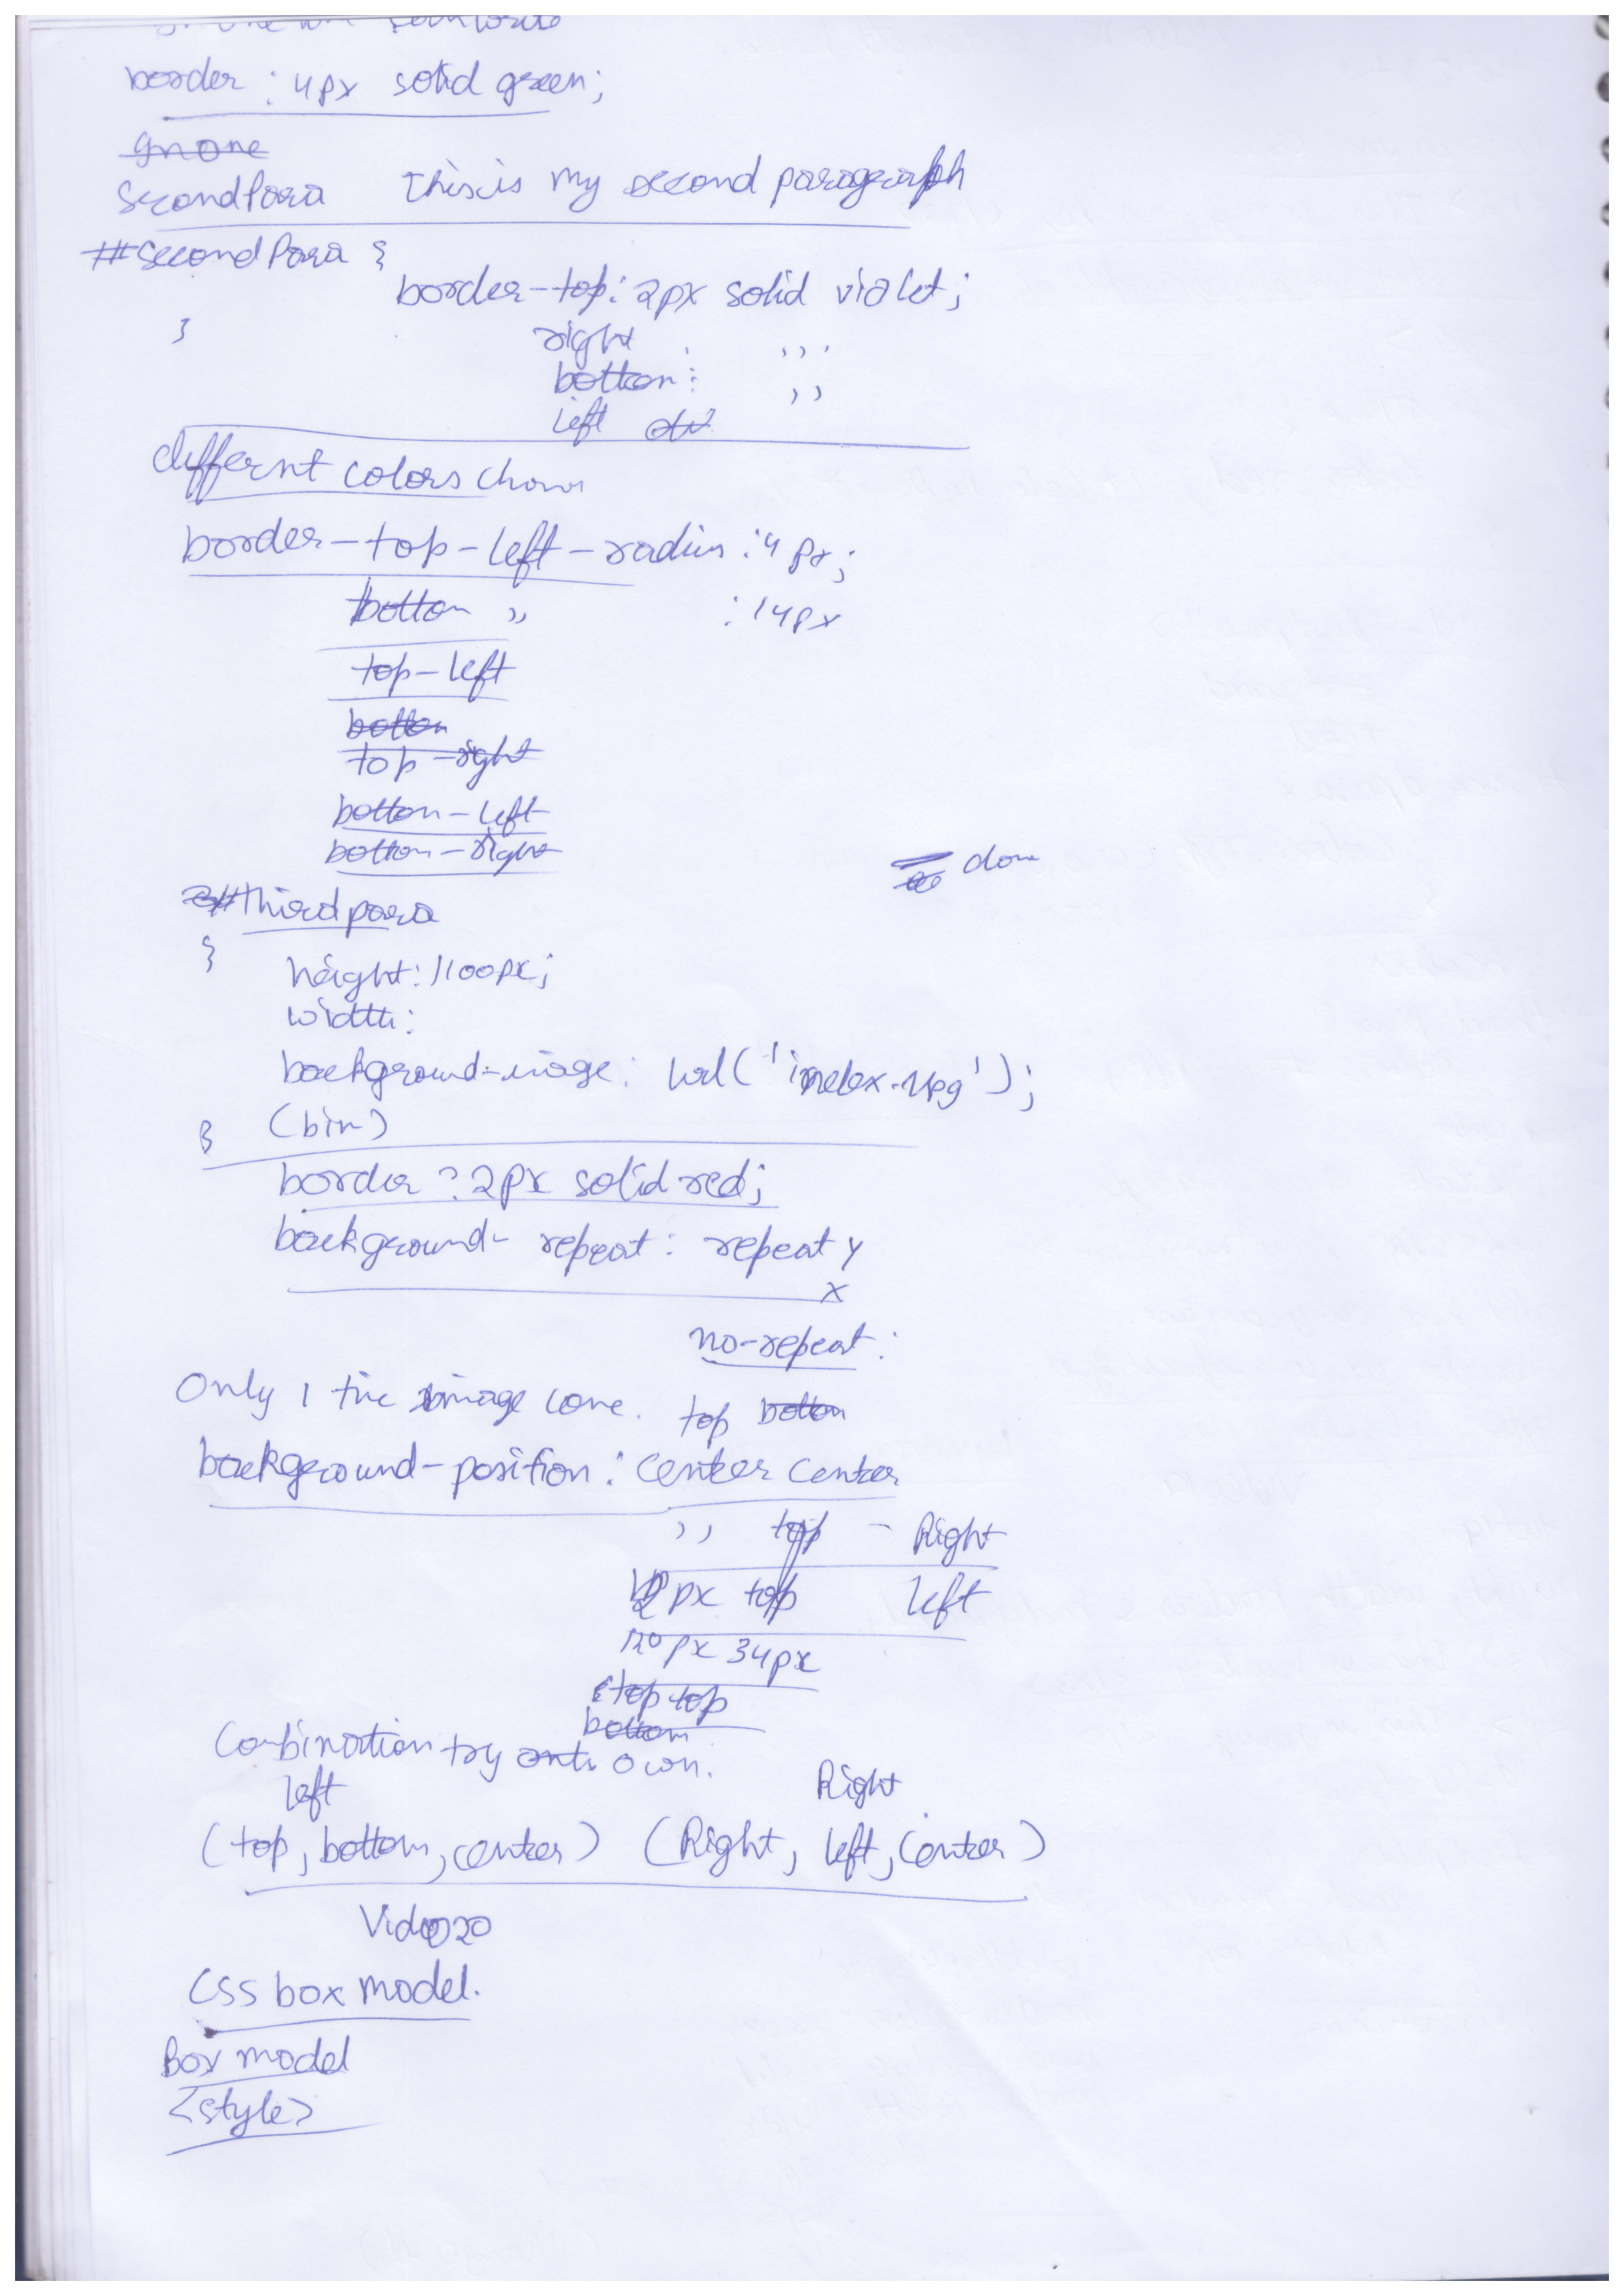 border : 4px solid green;
gnone
SecondPara This is my second paragraph
#SecondPara {
border-top: 2px solid violet;
}
right : ,,,
bottom : ,,
left
differnt colors chown
border-top-left-radius : 4px;
bottom ,, : 14px
top-left
bottom
top-right
bottom-left
bottom-right
done
#thirdpara
{
height: 1100px;
width:
background-image: url('index.jpg');
} (bin)
border : 2px solid red;
background- repeat: repeat y
x
no-repeat :
Only 1 time image come. top bottom
background-position : center center
,, top - Right
px top left
120px 34px
top top
bottom
Combination try own.
left Right
(top, bottom, center) (Right, left, Center)
Video 20
CSS box model.
Box model
<style>